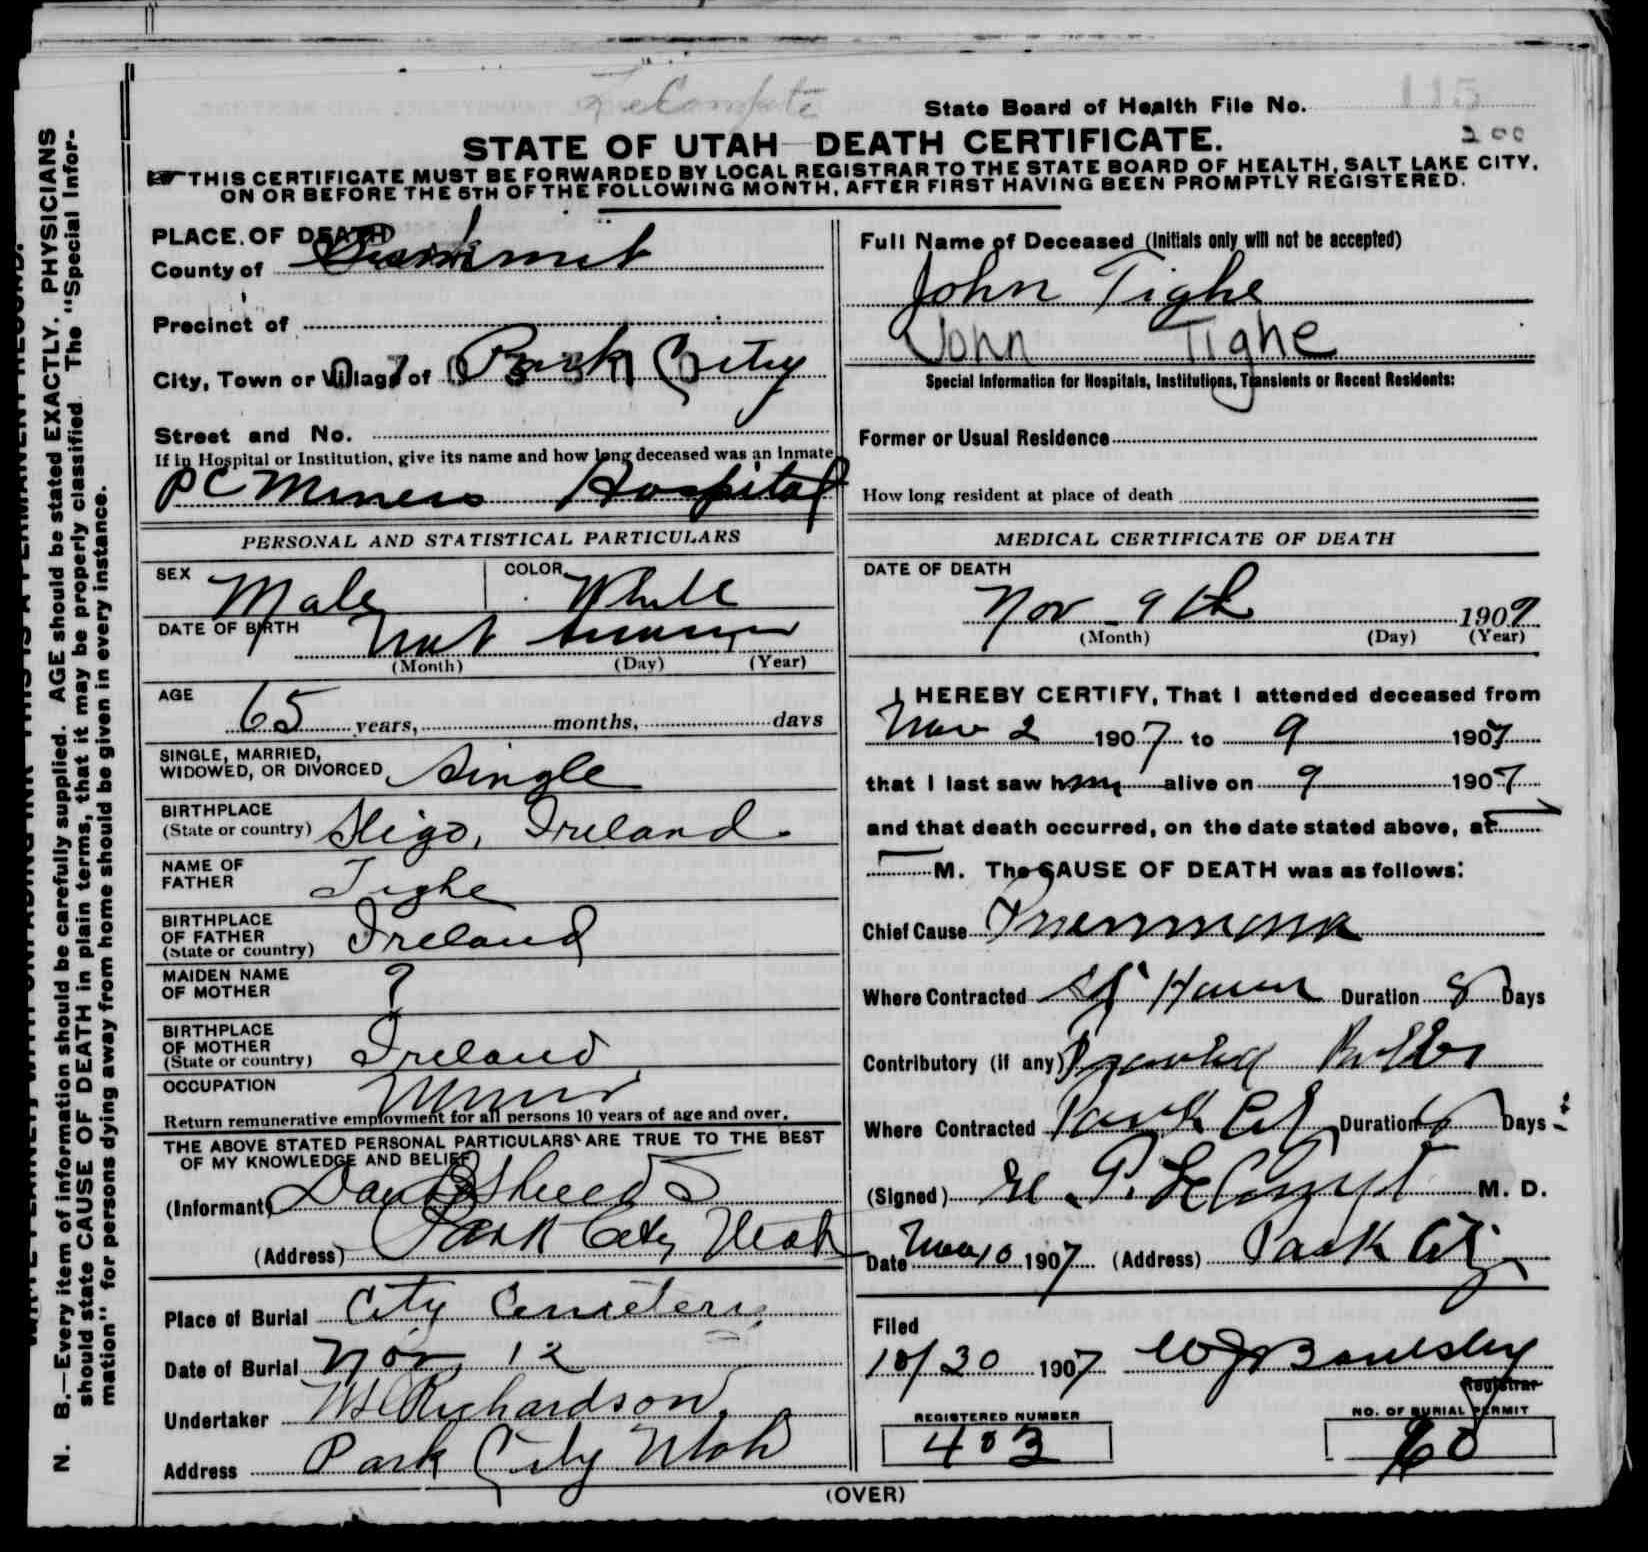 State Board of Health File No. 115
200
STATE OF UTAH DEATH CERTIFICATE.
THIS CERTIFICATE MUST BE FORWARDED BY LOCAL REGISTRAR TO THE STATE BOARD OF HEALTH, SALT LAKE CITY,
ON OR BEFORE THE 5TH OF THE FOLLOWING MONTH, AFTER FIRST HAVING BEEN PROMPTLY REGISTERED.
N. B.—Every item of information should be carefully supplied. AGE should be stated EXACTLY. PHYSICIANS
should state CAUSE OF DEATH in plain terms, that it may be properly classified. The "Special Infor-
mation" for persons dying away from home should be given in every instance.
PLACE OF DEATH
County of Summit
Precinct of
City, Town or Village of Park City
Street and No.
If in Hospital or Institution, give its name and how long deceased was an Inmate
P C Miners Hospital
PERSONAL AND STATISTICAL PARTICULARS
SEX Male COLOR White
DATE OF BIRTH Not
(Month) (Day) (Year)
AGE
65 years, months, days
SINGLE, MARRIED,
WIDOWED, OR DIVORCED Single
BIRTHPLACE
(State or country) Sligo, Ireland
NAME OF
FATHER Tighe
BIRTHPLACE
OF FATHER
(State or country) Ireland
MAIDEN NAME
OF MOTHER ?
BIRTHPLACE
OF MOTHER
(State or country) Ireland
OCCUPATION Miner
Return remunerative employment for all persons 10 years of age and over.
THE ABOVE STATED PERSONAL PARTICULARS ARE TRUE TO THE BEST
OF MY KNOWLEDGE AND BELIEF
(Informant)
(Address) Park City Utah
Place of Burial City Cemetery
Date of Burial Nov 12
Undertaker Richardson
Address Park City Utah
Full Name of Deceased (Initials only will not be accepted)
John Tighe
John Tighe
Special Information for Hospitals, Institutions, Transients or Recent Residents:
Former or Usual Residence
How long resident at place of death
MEDICAL CERTIFICATE OF DEATH
DATE OF DEATH
Nov 9th 1907
(Month) (Day) (Year)
I HEREBY CERTIFY, That I attended deceased from
Nov 2 1907 to 9 1907
that I last saw him alive on 9 1907
and that death occurred, on the date stated above, at
M. The CAUSE OF DEATH was as follows:
Chief Cause Pneumonia
Where Contracted Duration 8 Days
Contributory (if any)
Where Contracted Park City Duration Days
(Signed) M. D.
Date Nov 10 1907 (Address) Park City
Filed
10/30 1907
Registrar
REGISTERED NUMBER
403
NO. OF BURIAL PERMIT
60
(OVER)